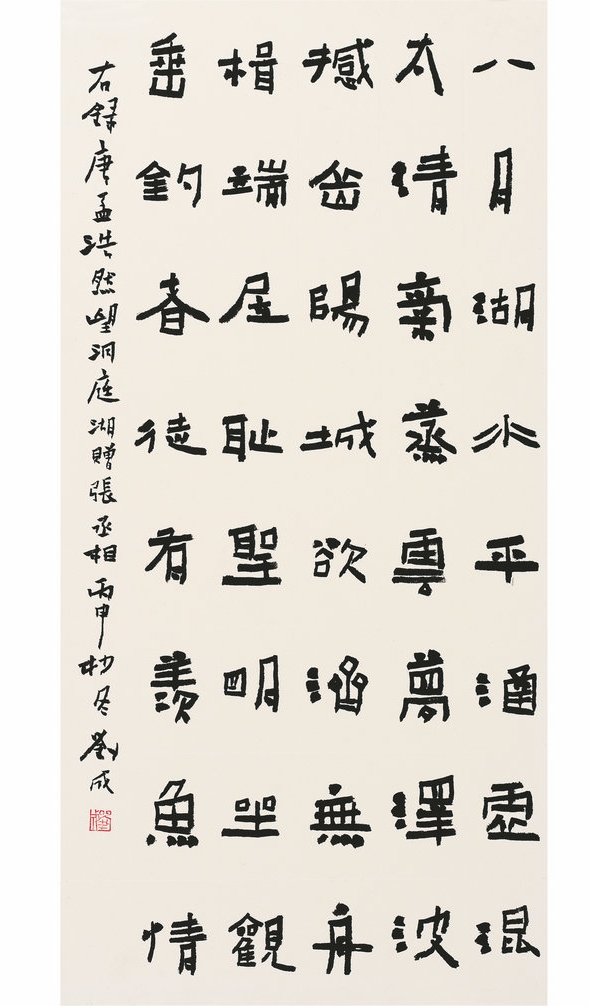 八月湖水平涵虛混
太清氣蒸雲夢澤波
撼岳陽城欲濟無舟
楫端居耻聖明坐觀
垂釣者徒有羨魚情
右錄唐孟浩然望洞庭湖贈張丞相丙申杪冬劉成